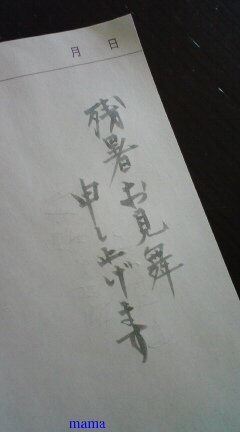 月 日
残暑お見舞
申し上げます
mama